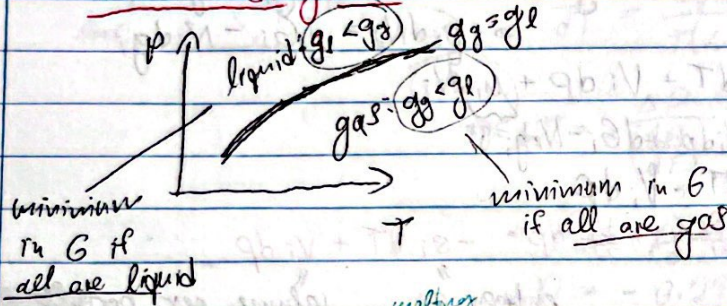 P
liquid: gl < gg
gg = gl
gas: gg < gl
minimum
in G if
all are liquid
T
minimum in G
if all are gas